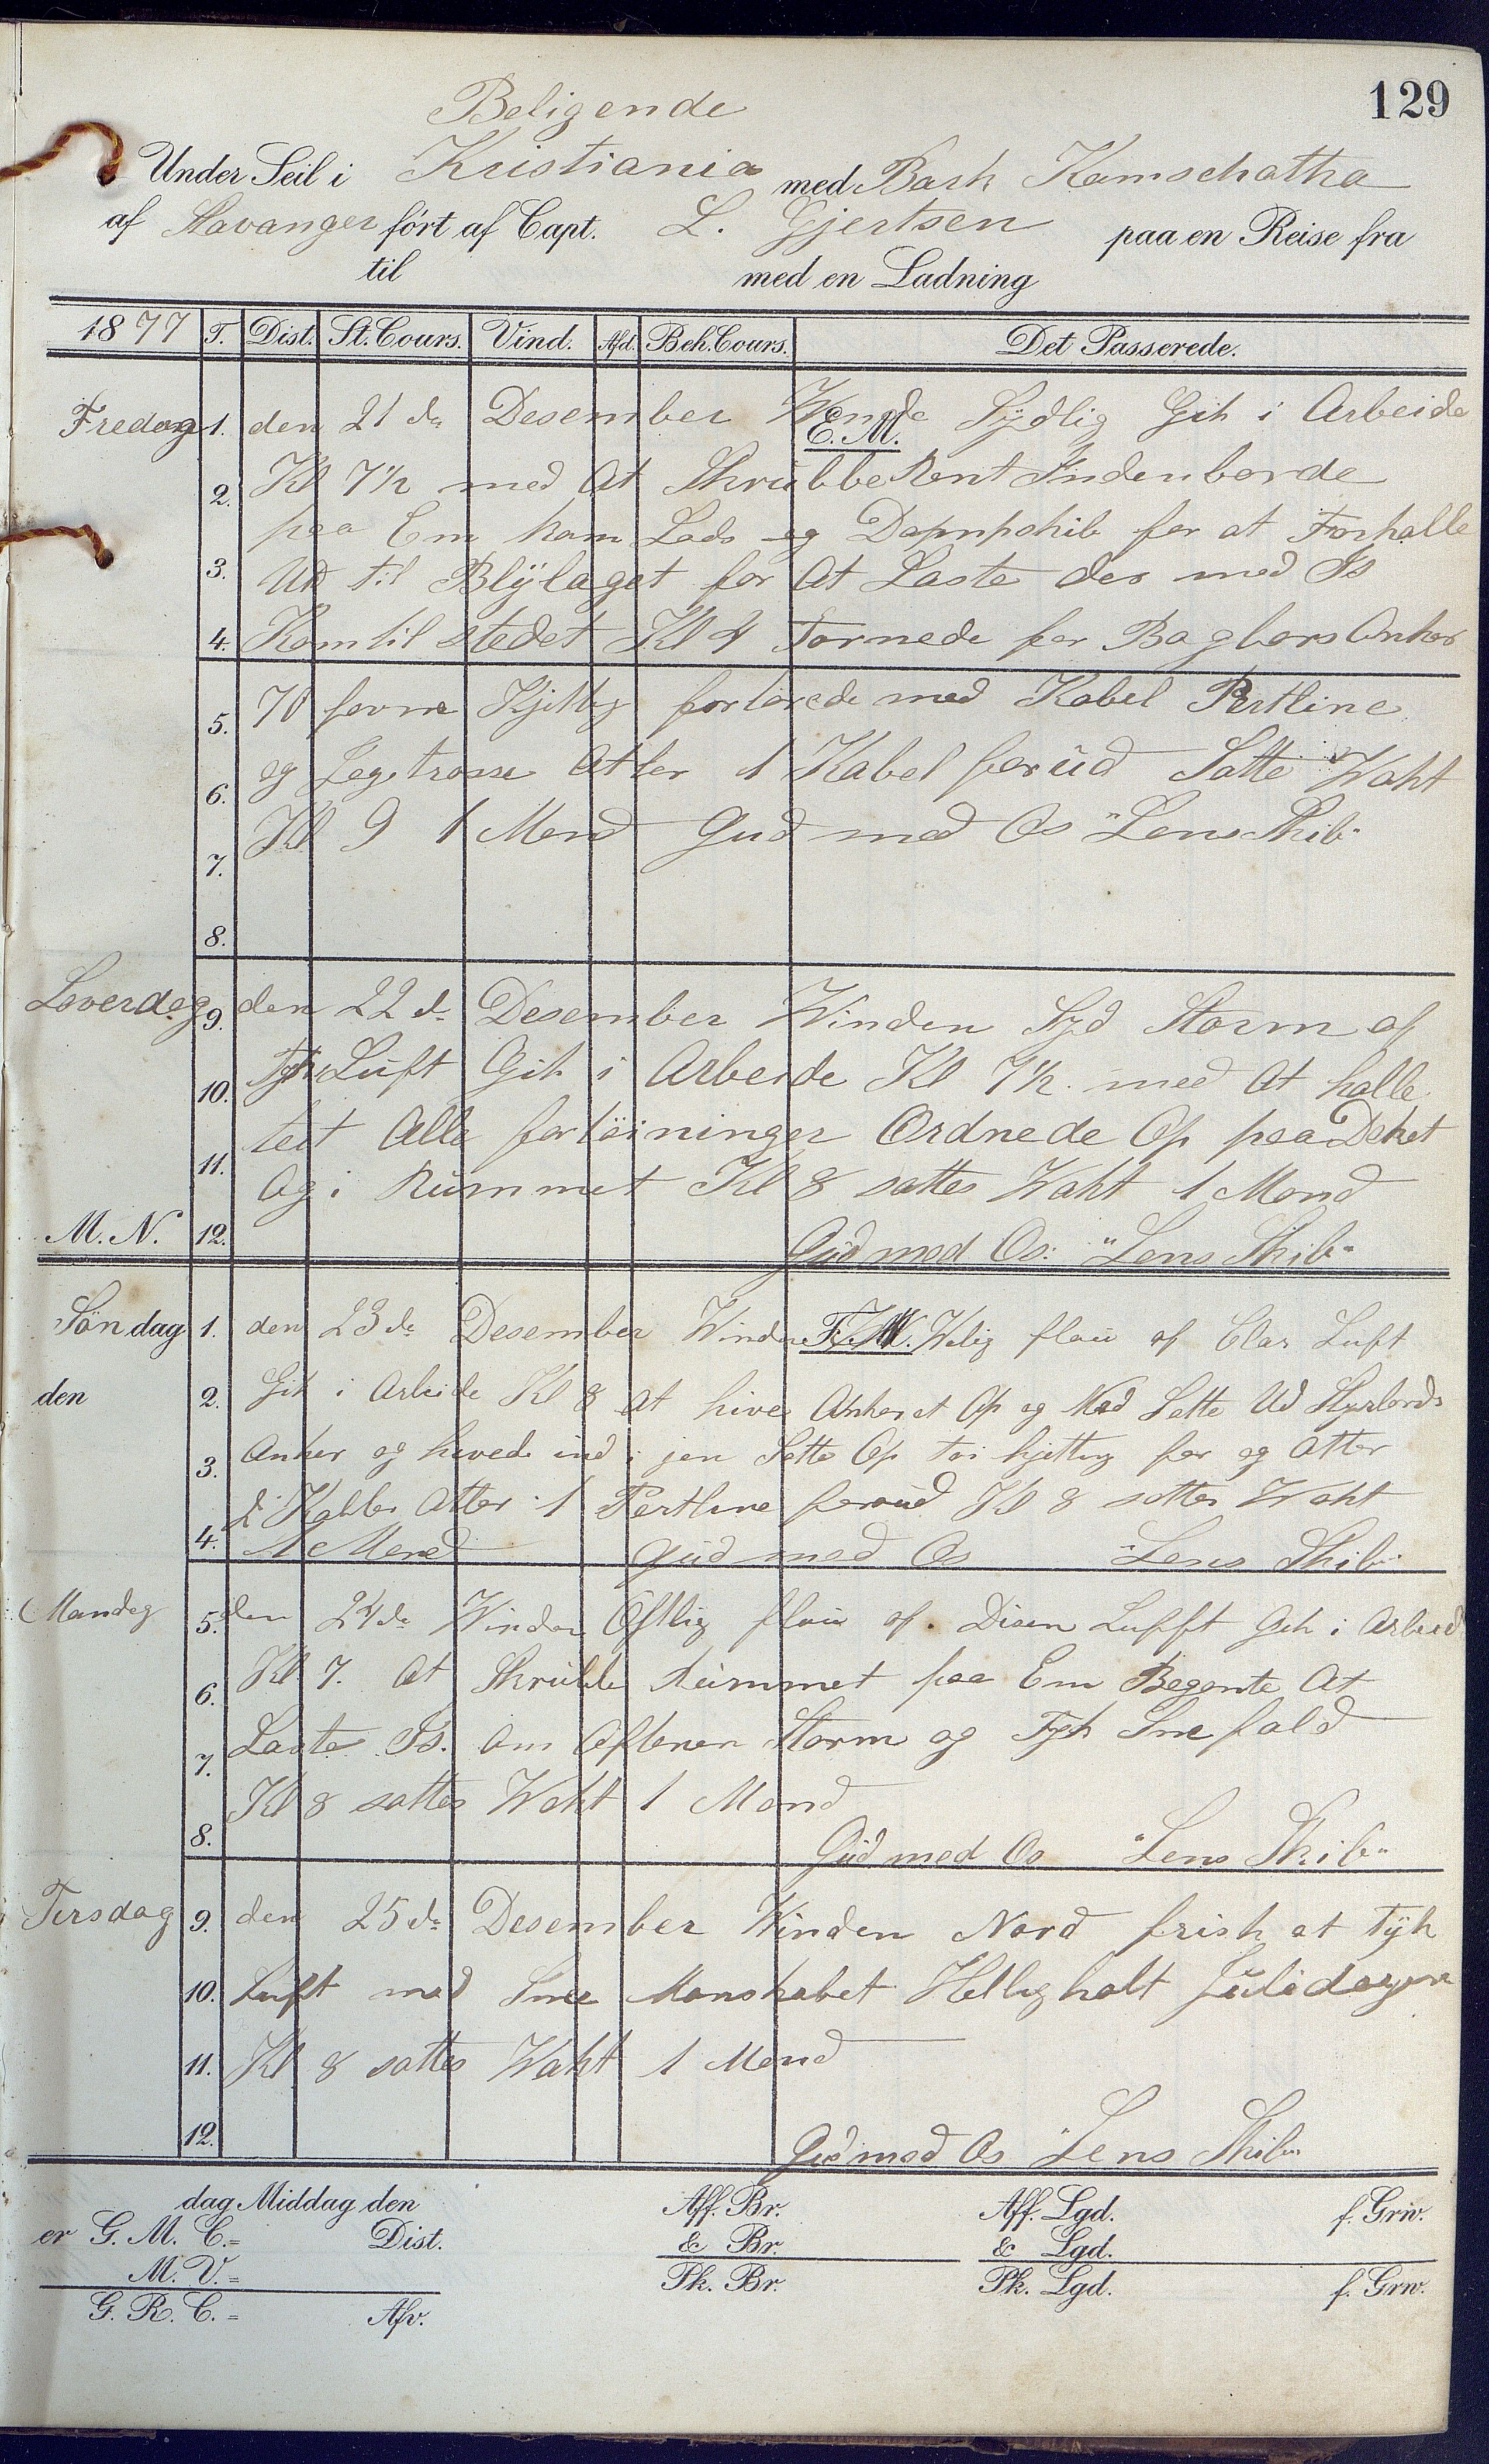 129
Beligende
Under Seil i Kristiania med Bark Kamschatka
af Stavanger ført af Capt. L. Gjertsen paa en Reise fra
til med en Ladning
1877 T. Dist. St. Cours. Vind. Afd. Beh. Cours. Det Passerede.
Fredag 1. den 21 de Desember Wende Sydlig Gik i Arbeide
E. M.
2. Kl 7½ med At Skrubbe Rent Indenborde
paa Em kom Lods og Dapnpskib for at Forhalle
3. Ud til Blylaget for At Laste der med Is
4. Kom til stedet Kl 4 Tornede for Bagbors Anker
5. 70 favne Kjetting fortøiede med Kabel Pertline
6. og Jagetrosse Atter 1 Kabel forud Satte Wakt
7. Kl 9 1 Mand Gud med Os "Lens Skib"
8.
Løverdag 9. den 22 d. Desember Winden Syd Storm af
10. Tyk Luft Gik i Arbeide Kl 7½ med At halle
11. tet Alle fortøininger Ordnede Op paa Deket
Og i Rummet Kl 8 sattes Wakt 1 Mand
M. N. 12. Gud med Os: "Lens Skib"
Søndag 1. den 23 de Desember Winden F. M. Welig flau af Clar Luft
den 2. Gik i Arbeide Kl 8 At hive Ankeret Op og Med Satte Ud Styrbords
3. Anker og hivede ind i jen Satte Op to kjetting for og Atter
4. 2 Kabler Atter 1 Pertline forud Kl 8 sattes Wakt
1 Mand Gud med Os "Lens Skib"
Mandag 5. den 24 de Winden Østlig flau af Disen Lufft Gik i Arbeid
6. Kl 7. At Skrubbe Rummet paa Em Begente At
7. Laste Is. Om Aftenen Storm og Tyk Snefald
Kl 8 sattes Wakt 1 Mand
8. Gud med Os "Lens Skib"
Tirsdag 9. den 25 d. Desember Winden Nord frisk at tyk
10. Luft med Snee Manskabet Helligholt Juledagen
11. Kl 8 sattes Wakt 1 Mand
12. Gud med Os "Lens Skib"
dag Middag den Aff. Br. Aff. Lgd. f. Grw.
er G. M. C. = Dist. & Br. & Lgd.
M. V. = Pk. Br. Pk. Lgd. f. Grw.
G. R. C. = Afv.